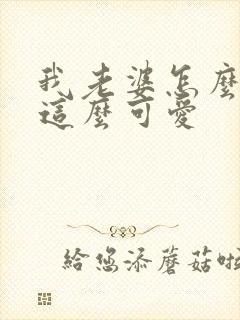 我老婆怎麼
這麼可愛
給您添蘑菇啦